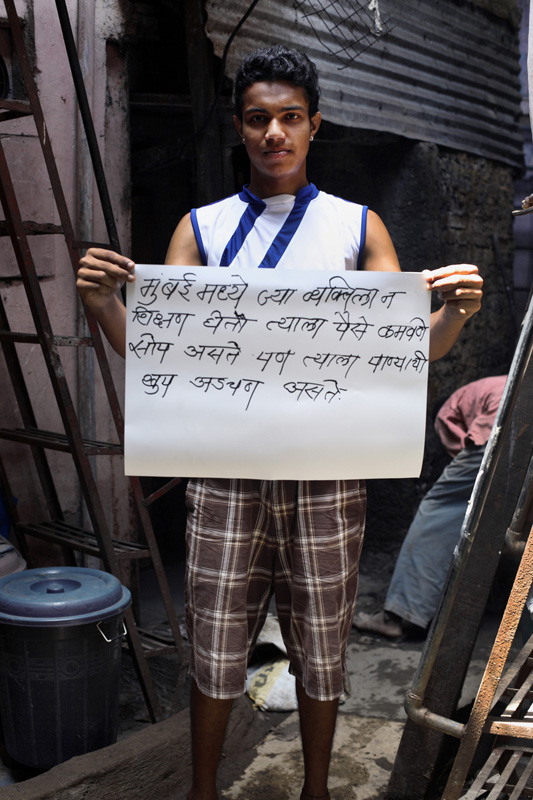 मुंबई मध्ये ज्या व्यक्तिला न
शिक्षण घेता त्याला पैसे कमवणे
सोप असते पण त्याला पाण्याची
खुप अडचण असते.